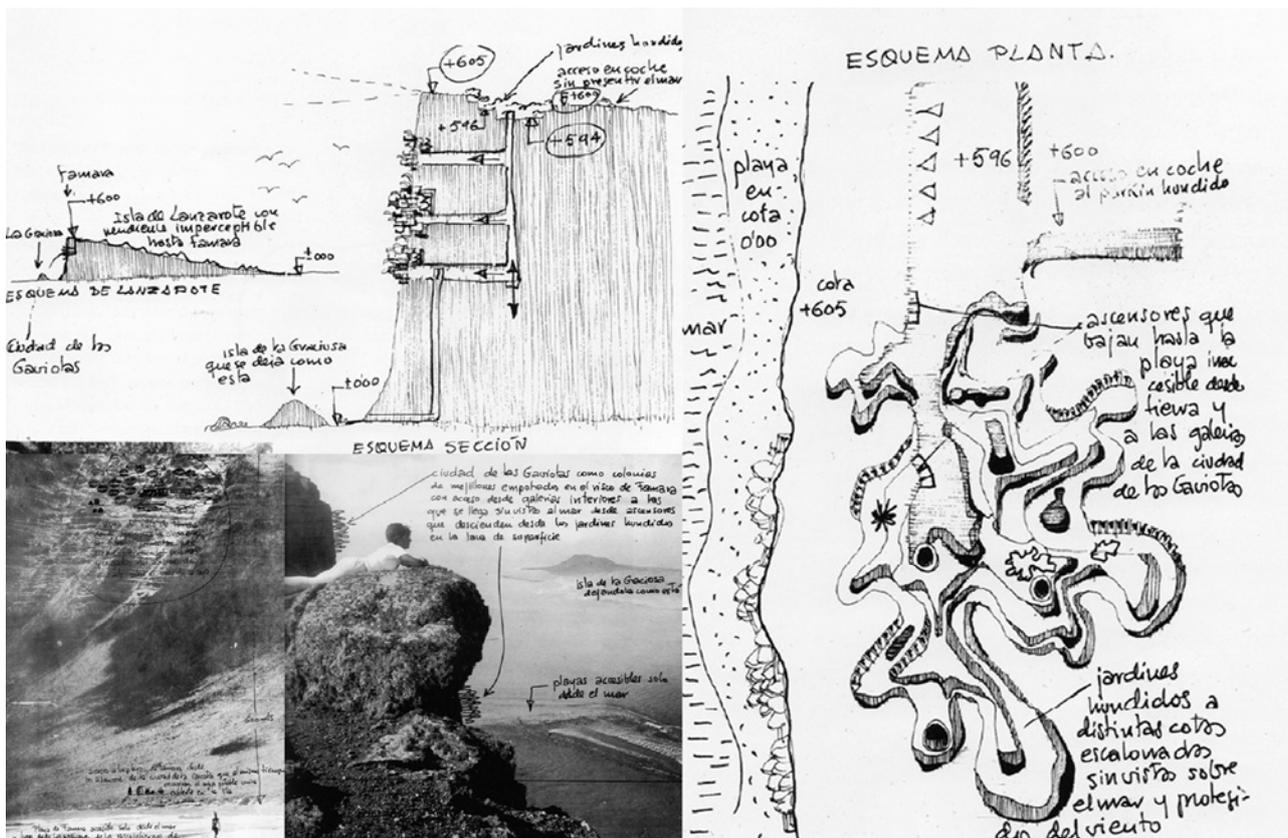 +605
jardines hundidos
acceso en coche
sin presentir el mar
+600
+596
+594
Famara
+600
La Graciosa
Isla de Lanzarote con
pendiente imperceptible
hasta Famara
±000
ESQUEMA DE LANZAROTE
Ciudad de las
Gaviotas
isla de la Graciosa
que se deja como
esta
±000
ESQUEMA SECCIÓN
ciudad de las Gaviotas como colonias
de mejillones empotrados en el risco de Famara
con acceso desde galerias interiores a las
que se llega sin vistas al mar desde ascensores
que descienden desde los jardines hundidos
en la lava de superficie
isla de la Graciosa
dejandola como está
playas accesibles solo
desde el mar
Playa de Famara accesible solo desde el mar
ESQUEMA PLANTA.
playa
en
cota
0'00
mar
cota
+605
+596
+600
acceso en coche
al jardin hundido
ascensores que
bajan hasta la
playa inac
cesible desde
tierra y
a las galerias
de la ciudad
de las Gaviotas
jardines
hundidos a
distintas cotas
escalonadas
sin vistas sobre
el mar y protegi-
dos del viento